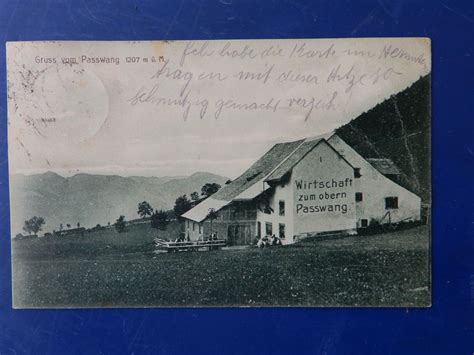 Gruss vom Passwang 1207 m ü. M.
Ich habe die Karte im Hemde
tragen mit dieser Hitze so
schmutzig gemacht
Wirtschaft
zum obern
Passwang.